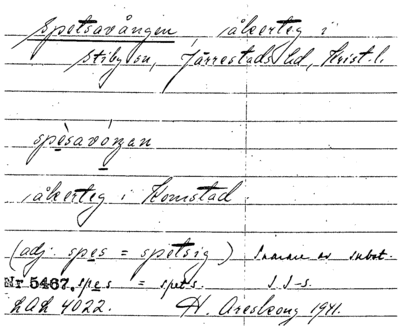 Spetsavången, åkerteg i
Stiby sn, Järrestads hd, Krist. l.
spèsavóŋan
åkerteg i Komstad.
(adj. spes = spetsig) Samme av subst.
Nr 5467. spes = spets. S J-s.
LAL 4022. H. Areskoug 1941.